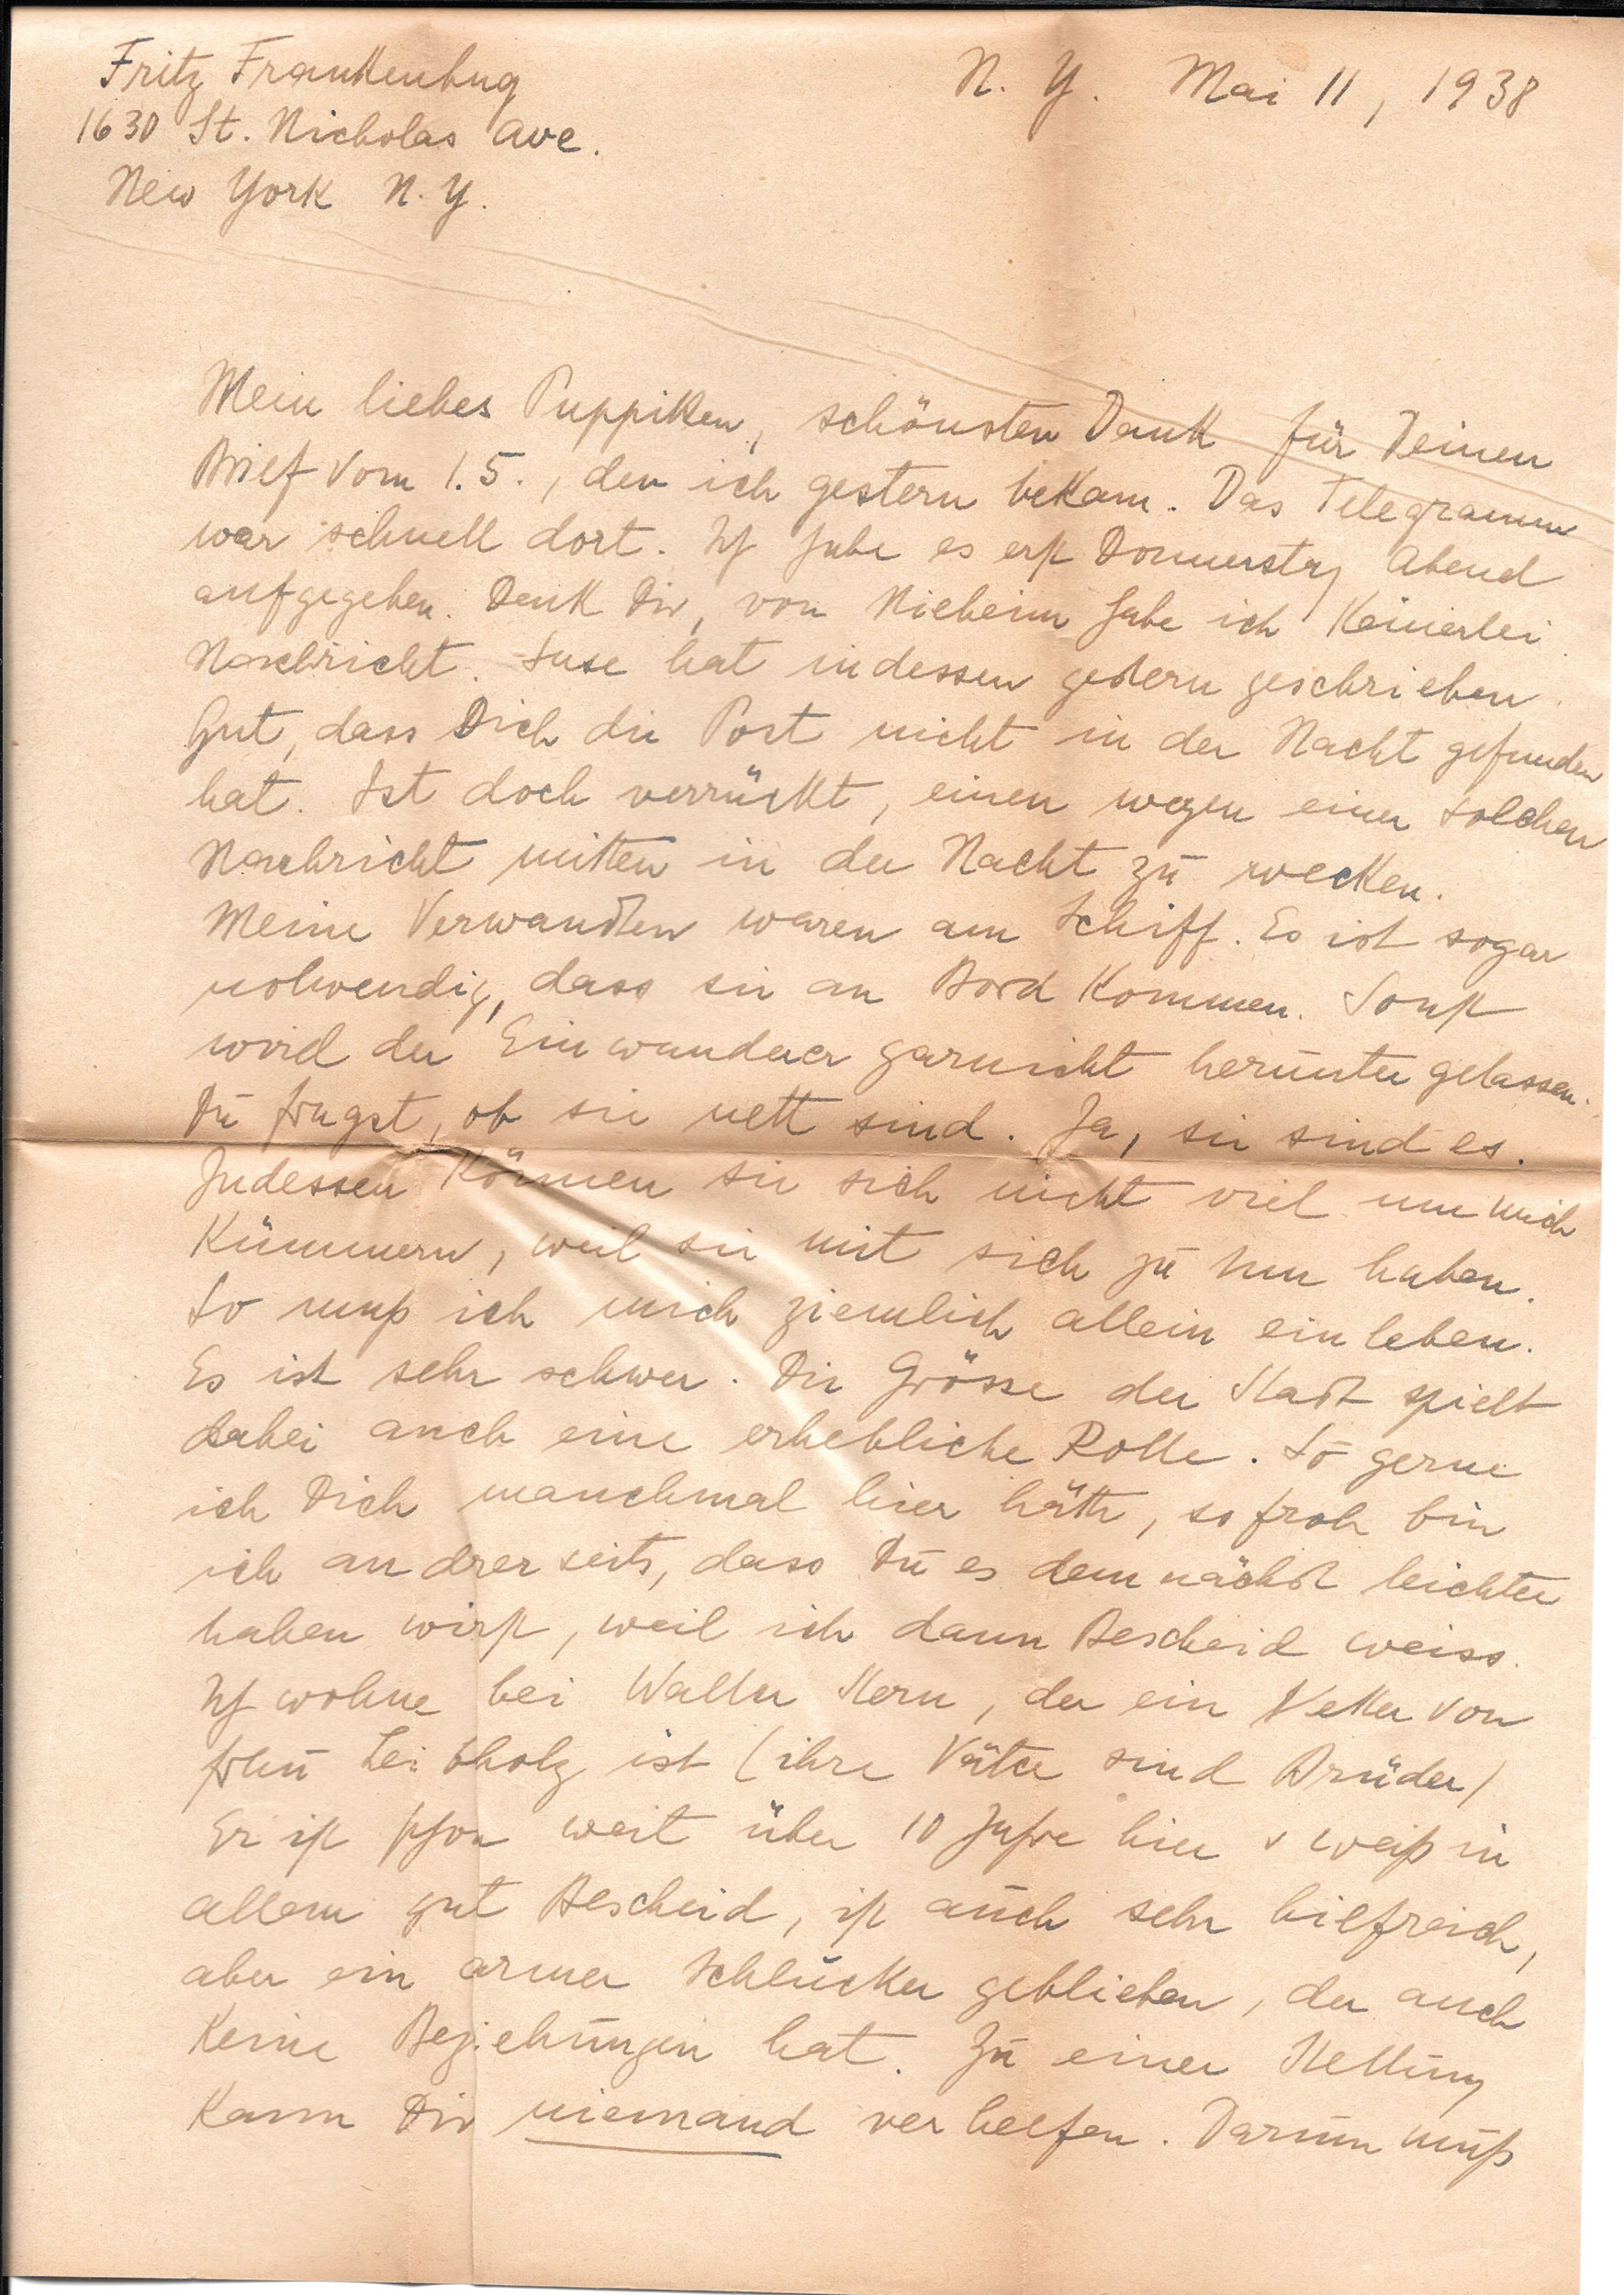 Fritz Frankenbug
1630 St. Nicholas Ave.
New York N.Y.
N. Y. Mai 11, 1938
Mein liebes Puppiken, schönsten Dank für Deinen
Brief vom 1.5., den ich gestern bekam. Das Telegramm
war schnell dort. Ich habe es erst Donnerstag Abend
aufgegeben. Denk Dir, von Nieheim habe ich keinerlei
Nachricht. Suse hat indessen gestern geschrieben.
Gut, dass Dich die Post nicht in der Nacht gefunden
hat. Ist doch verrückt, einen wegen einer solchen
Nachricht mitten in der Nacht zu wecken.
Meine Verwandten waren am Schiff. Es ist sogar
notwendig, dass sie an Bord kommen. Sonst
wird der Einwanderer garnicht herunter gelassen.
Du frugst, ob sie nett sind. Ja, sie sind es.
Indessen können sie sich nicht viel um mich
kümmern, weil sie mit sich zu tun haben.
So muß ich mich ziemlich allein einleben.
Es ist sehr schwer. Die Grösse der Stadt spielt
dabei auch eine erhebliche Rolle. So gerne
ich Dich manchmal hier hätte, so froh bin
ich andrerseits, dass Du es demnächst leichter
haben wirst, weil ich dann Bescheid weiss.
Ich wohne bei Walter Stern, der ein Vetter von
Leibholz ist (ihre Väter sind Brüder)
Er ist schon weit über 10 Jahre hier & weiß in
allem gut Bescheid, ist auch sehr hilfreich,
aber ein armer Schlucker geblieben, der auch
keine Beziehungen hat. Zu einer Stellung
kann Dir niemand verhelfen. Darum muß